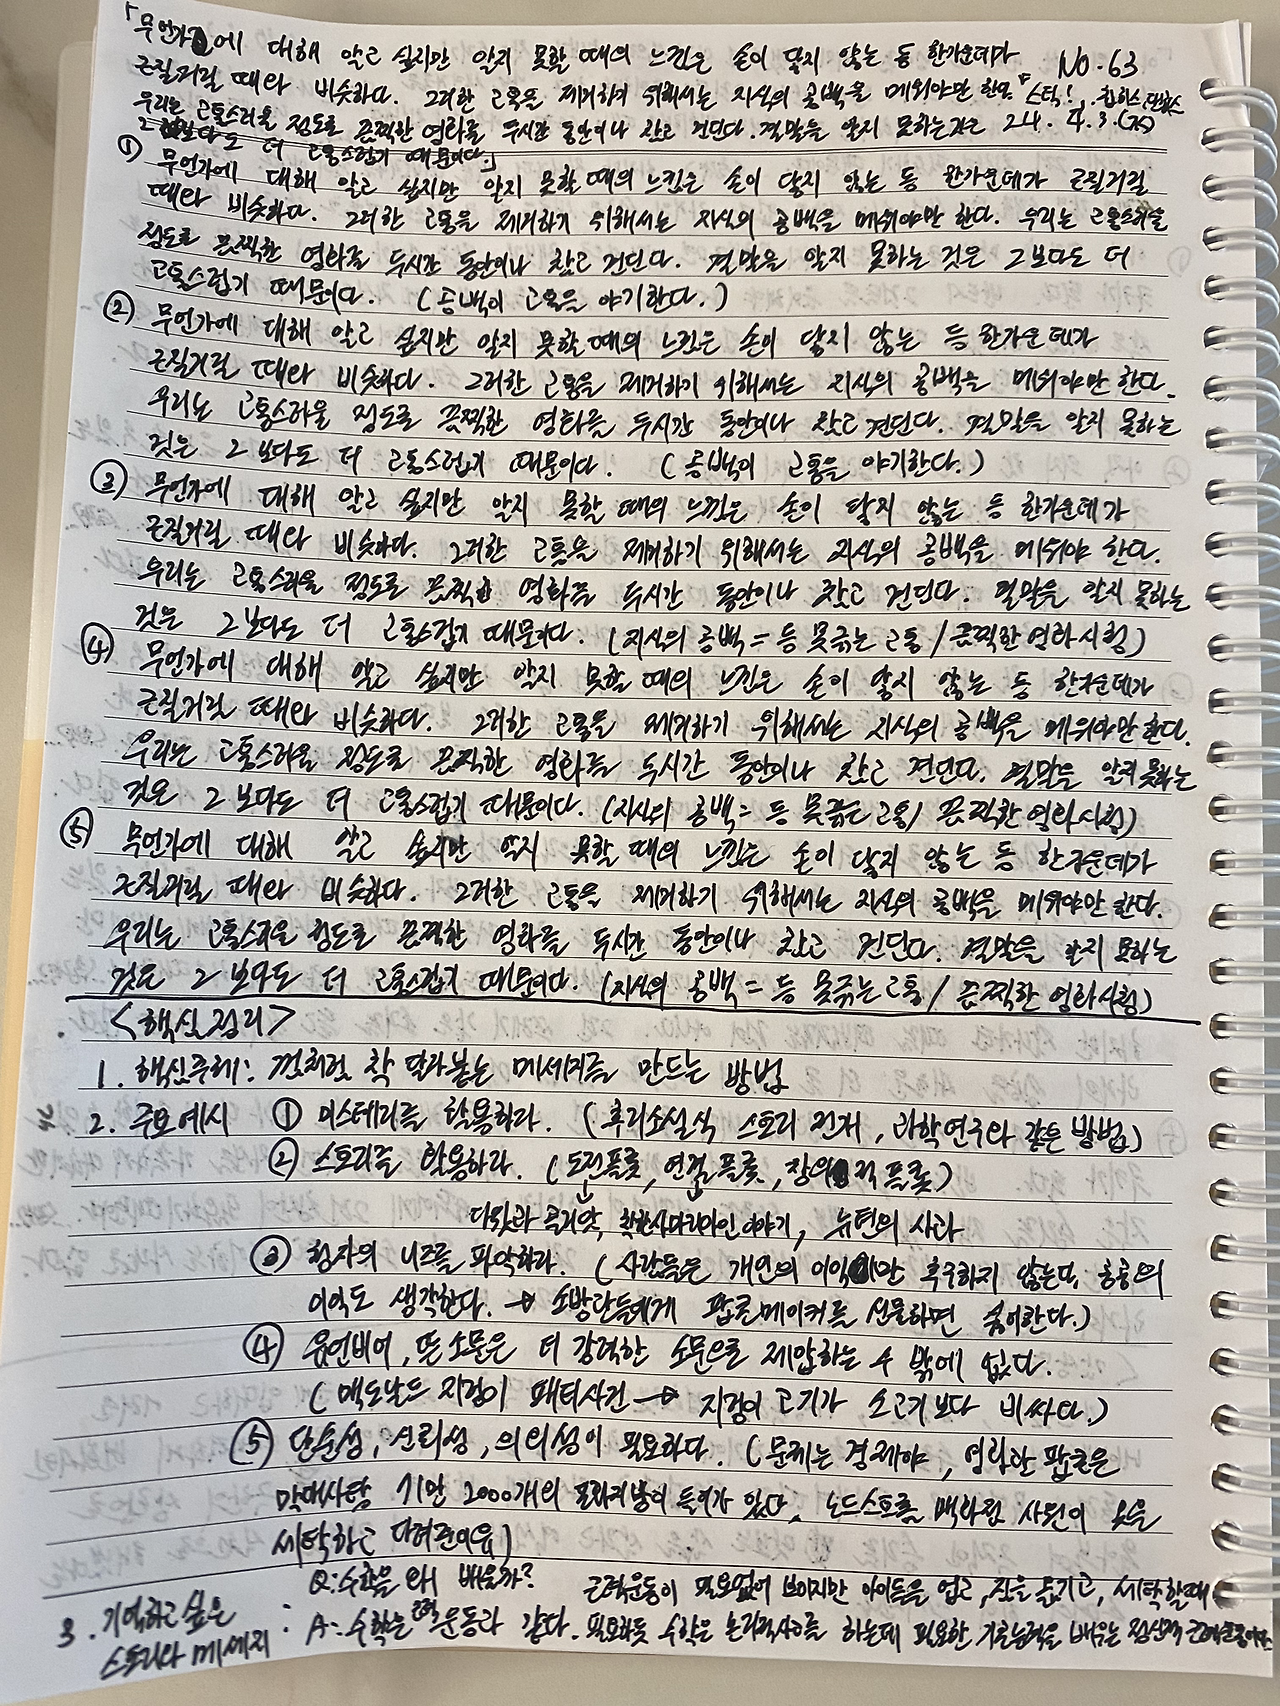 「무언가에 대해 알고 싶지만 알지 못할 때의 느낌은 손이 닿지 않는 등 한가운데가 No.63
근질거릴 때와 비슷하다. 그러한 고통을 제거하기 위해서는 지식의 공백을 메워야만 한다.『스틱!, 칩히스,댄히스
우리는 고통스러울 정도로 끔찍한 영화를 두시간 동안이나 참고 견딘다. 결말을 알지 못하는 것은 24. 4. 3.(수)
그보다도 더 고통스럽기 때문이다.」
① 무언가에 대해 알고 싶지만 알지 못할 때의 느낌은 손이 닿지 않는 등 한가운데가 근질거릴
때와 비슷하다. 그러한 고통을 제거하기 위해서는 지식의 공백을 메워야만 한다. 우리는 고통스러울
정도로 끔찍한 영화를 두시간 동안이나 참고 견딘다. 결말을 알지 못하는 것은 그보다도 더
고통스럽기 때문이다. (공백이 고통을 야기한다.)
② 무언가에 대해 알고 싶지만 알지 못할 때의 느낌은 손이 닿지 않는 등 한가운데가
근질거릴 때와 비슷하다. 그러한 고통을 제거하기 위해서는 지식의 공백을 메워야만 한다.
우리는 고통스러울 정도로 끔찍한 영화를 두시간 동안이나 참고 견딘다. 결말을 알지 못하는
것은 그보다도 더 고통스럽기 때문이다. (공백이 고통을 야기한다.)
③ 무언가에 대해 알고 싶지만 알지 못할 때의 느낌은 손이 닿지 않는 등 한가운데가
근질거릴 때와 비슷하다. 그러한 고통을 제거하기 위해서는 지식의 공백을 메워야 한다.
우리는 고통스러울 정도로 끔찍한 영화를 두시간 동안이나 참고 견딘다. 결말을 알지 못하는
것은 그보다도 더 고통스럽기 때문이다. (지식의 공백 = 등 못긁는 고통 / 끔찍한 영화시청)
④ 무언가에 대해 알고 싶지만 알지 못할 때의 느낌은 손이 닿지 않는 등 한가운데가
근질거릴 때와 비슷하다. 그러한 고통을 제거하기 위해서는 지식의 공백을 메워야만 한다.
우리는 고통스러울 정도로 끔찍한 영화를 두시간 동안이나 참고 견딘다. 결말을 알지 못하는
것은 그보다도 더 고통스럽기 때문이다. (지식의 공백 = 등 못긁는 고통/ 끔찍한 영화시청)
⑤ 무언가에 대해 알고 싶지만 알지 못할 때의 느낌은 손이 닿지 않는 등 한가운데가
근질거릴 때와 비슷하다. 그러한 고통을 제거하기 위해서는 지식의 공백을 메워야만 한다.
우리는 고통스러울 정도로 끔찍한 영화를 두시간 동안이나 참고 견딘다. 결말을 알지 못하는
것은 그보다도 더 고통스럽기 때문이다. (지식의 공백 = 등 못긁는 고통 / 끔찍한 영화시청)
<핵심정리>
1. 핵심주제: 껌처럼 착 달라붙는 메세지를 만드는 방법
2. 주요예시 ① 미스테리를 활용하라. (추리소설식 스토리 전개, 과학연구와 같은 방법)
② 스토리를 활용하라. (도전플롯, 연결플롯, 창의적 플롯)
다윗과 골리앗, 착한사마리아인 이야기, 뉴턴의 사과
③ 청자의 니즈를 파악하라. (사람들은 개인의 이익만 추구하지 않는다. 공공의
이익도 생각한다. → 소방관들에게 팝콘메이커를 선물하면 싫어한다.)
④ 유언비어, 뜬소문은 더 강력한 소문으로 제압하는 수 밖에 없다.
(맥도날드 지렁이 패티사건 → 지렁이 고기가 소고기보다 비싸다.)
⑤ 단순성, 신뢰성, 의외성이 필요하다. (문제는 경제야, 영화관 팝콘은
막대사탕 1만 2000개의 포화지방이 들어가 있다, 노드스트롬 백화점 사원이 옷을
세탁하고 다려준이유)
3. 기억하고 싶은 : Q: 수학을 왜 배울까? 근력운동이 필요없어 보이지만 아이들을 업고, 짐을 옮기고, 세탁할때
스토리와 메세지 A: 수학은 근력 운동과 같다. 필요하듯 수학은 논리적사고를 하는데 필요한 기초능력을 배우는 정신적 근력운동이다.